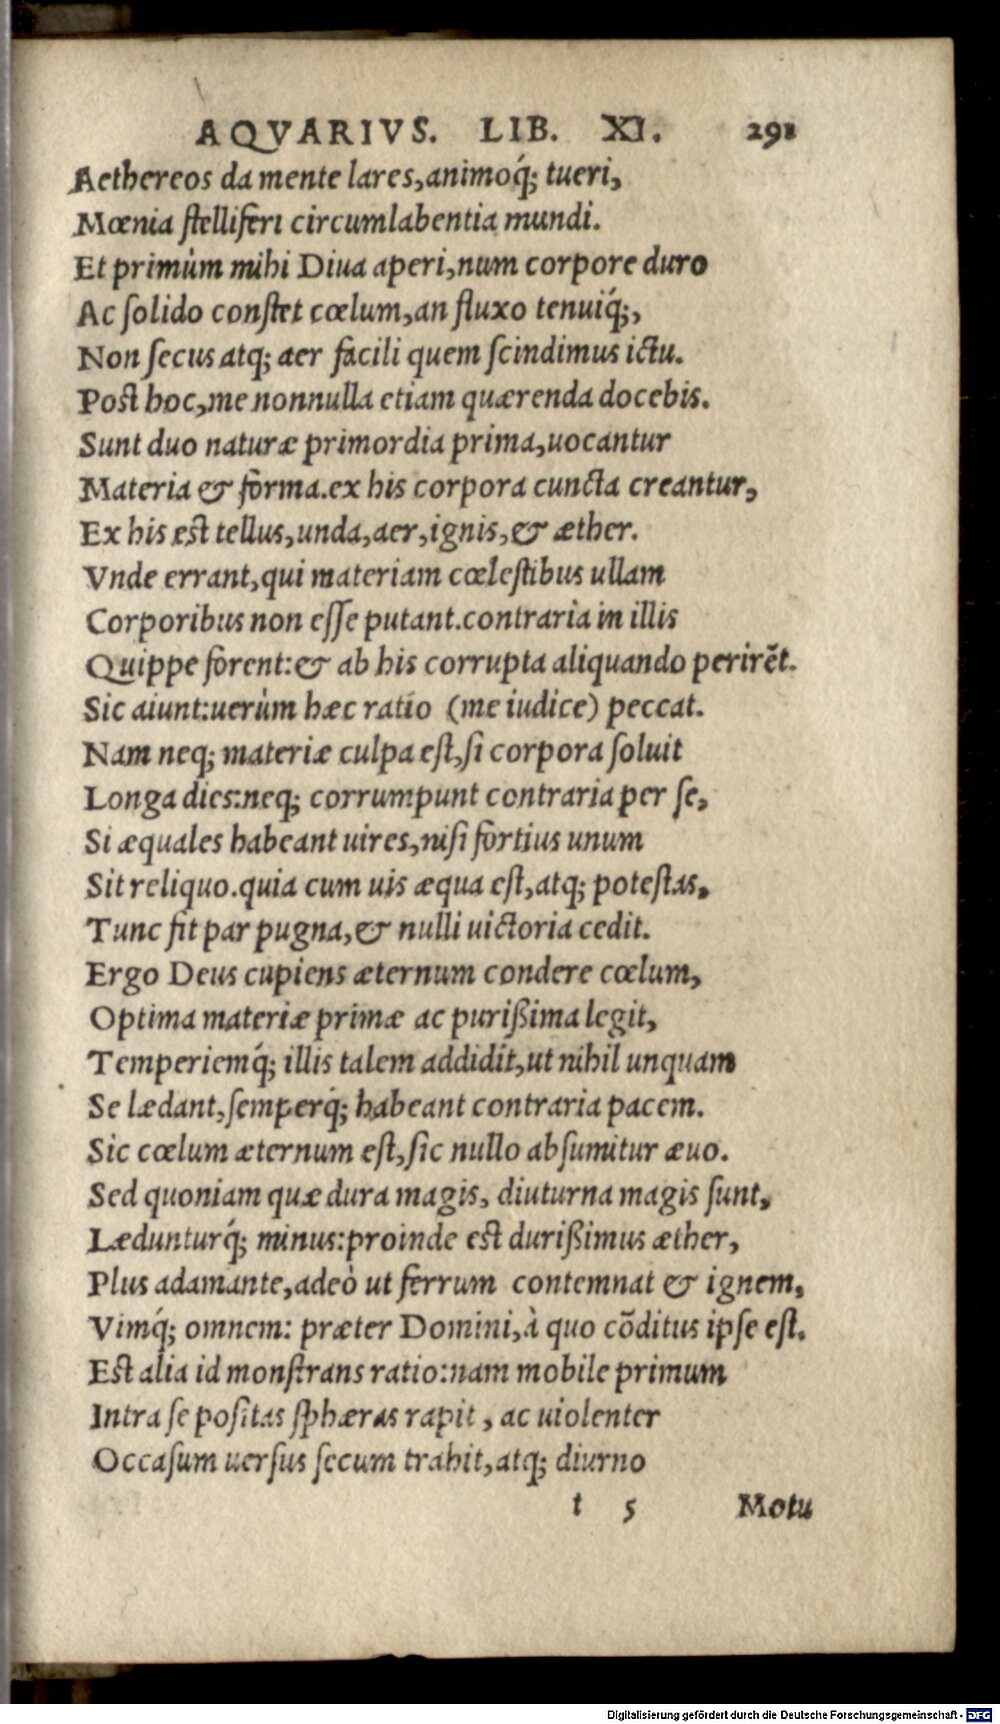 AQVARIVS. LIB. XI. 291
Aethereos da mente lares, animoq́; tueri,
Mœnia stelliferi circumlabentia mundi.
Et primùm mihi Diua aperi, num corpore duro
Ac solido constet cœlum, an fluxo tenuiq́;,
Non secus atq; aer facili quem scindimus ictu.
Post hoc, me nonnulla etiam quærenda docebis.
Sunt duo naturæ primordia prima, uocantur
Materia & forma. ex his corpora cuncta creantur,
Ex his est tellus, unda, aer, ignis, & æther.
Vnde errant, qui materiam cœlestibus ullam
Corporibus non esse putant. contraria in illis
Quippe forent: & ab his corrupta aliquando perirẽt.
Sic aiunt: uerùm hæc ratio (me iudice) peccat.
Nam neq; materiæ culpa est, si corpora soluit
Longa dies: neq; corrumpunt contraria per se,
Si æquales habeant uires, nisi fortius unum
Sit reliquo. quia cum uis æqua est, atq; potestas,
Tunc fit par pugna, & nulli uictoria cedit.
Ergo Deus cupiens æternum condere cœlum,
Optima materiæ primæ ac purißima legit,
Temperiemq́; illis talem addidit, ut nihil unquam
Se lædant, semperq́; habeant contraria pacem.
Sic cœlum æternum est, sic nullo absumitur æuo.
Sed quoniam quæ dura magis, diuturna magis sunt,
Lædunturq́; minus: proinde est durißimus æther,
Plus adamante, adeò ut ferrum contemnat & ignem,
Vimq́; omnem: præter Domini, à quo cõditus ipse est.
Est alia id monstrans ratio: nam mobile primum
Intra se positas sphæras rapit, ac uiolenter
Occasum uersus secum trahit, atq; diurno
t 5 Motu
Digitalisierung gefördert durch die Deutsche Forschungsgemeinschaft - DFG